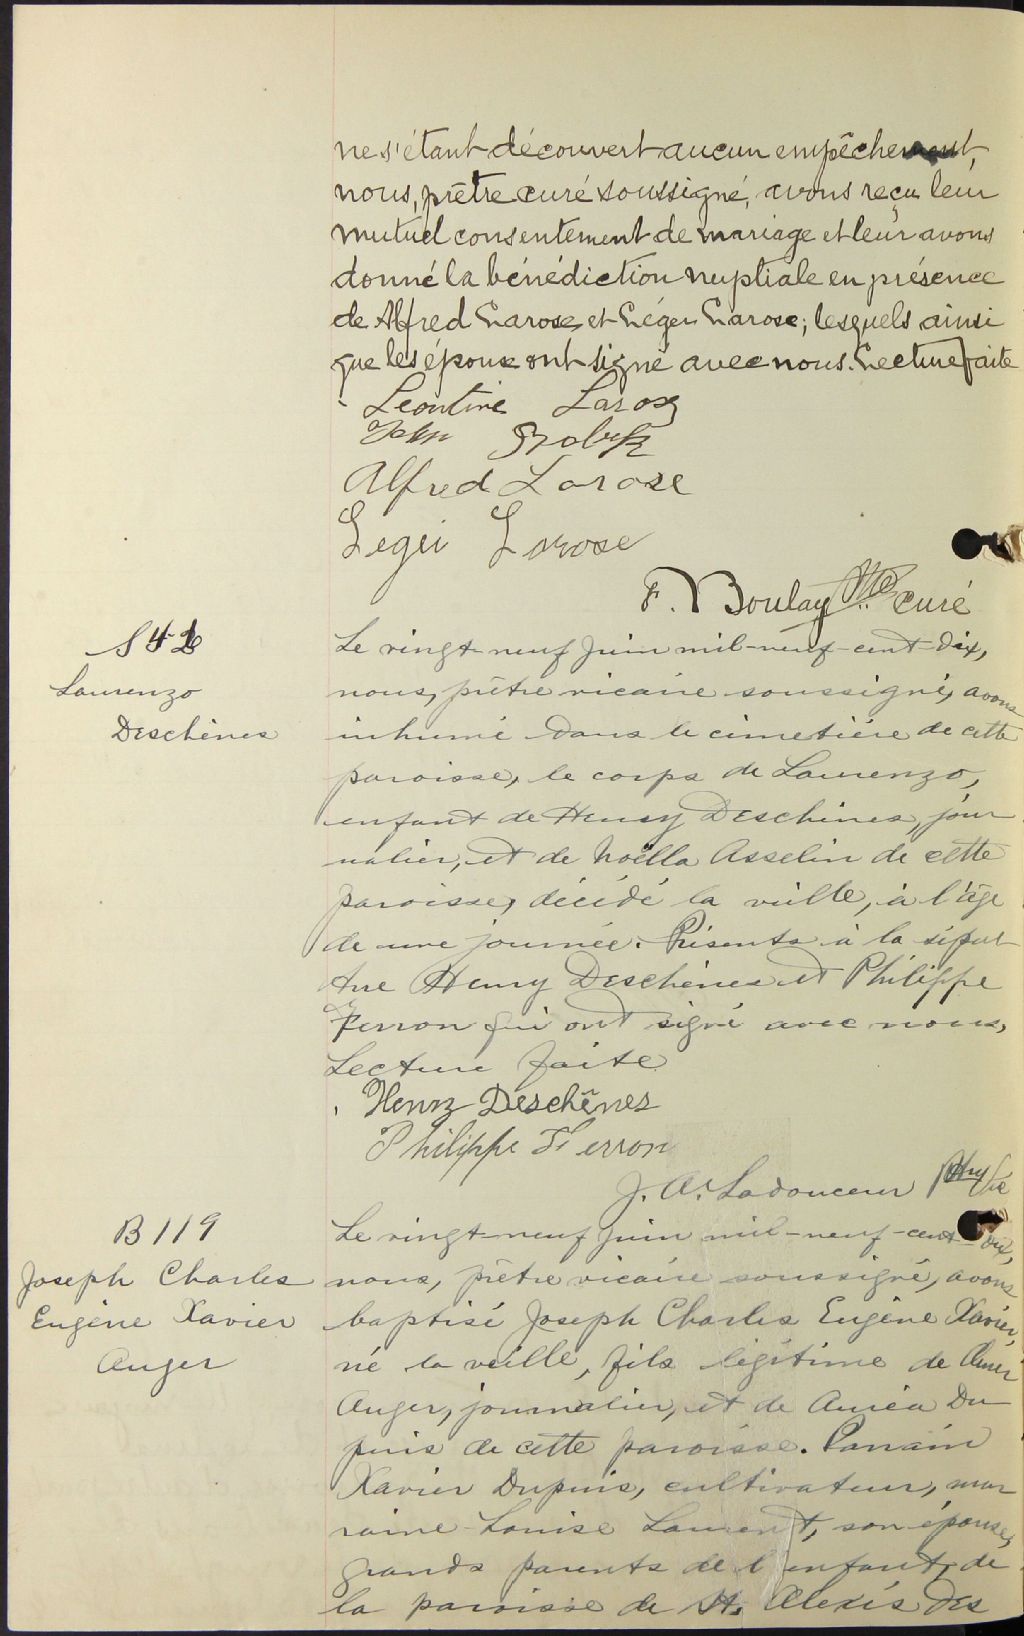 ne s'étant découvert aucun empêchement,
nous, prêtre curé soussigné, avons reçu leur
mutuel consentement de mariage et leur avons
donné la bénédiction nuptiale en présence
de Alfred Larose, et Léger Larose; lesquels ainsi
que les époux ont signé avec nous. Lecture faite
Leontine Larose
Alfred Larose
Legei Larose
F. Boulay Ptre curé
S 42
Laurenzo
Deschênes
Le vingt-neuf juin mil-neuf-cent-dix,
nous, prêtre vicaire soussigné, avons
inhumé dans le cimetière de cette
paroisse, le corps de Laurenzo,
enfant de Henry Deschênes, jour
nalier, et de Noëlla Asselin de cette
paroisse, décédé la veille, à l'âge
de une journée. Présents à la sépul
ture Henry Deschênes et Philippe
Ferron qui ont signé avec nous,
Lecture faite
Henry Deschênes
Philippe Ferron
J. A. Ladouceur Ptre Vic
B 119
Joseph Charles
Eugène Xavier
Auger
Le vingt-neuf juin mil-neuf-cent-dix,
nous, prêtre vicaire soussigné, avons
baptisé Joseph Charles Eugène Xavier,
né la veille, fils légitime de
Auger, journalier, et de Auréa Du
puis de cette paroisse. Parrain
Xavier Dupuis, cultivateur, mar
raine Louise Laurent, son épouse,
grands parents de l'enfant, de
la paroisse de St. Alexis des